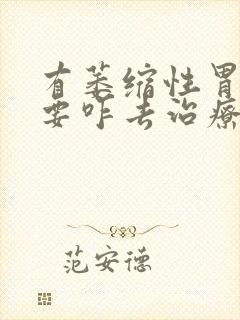 有萎缩性胃
要咋去治疗
范安德